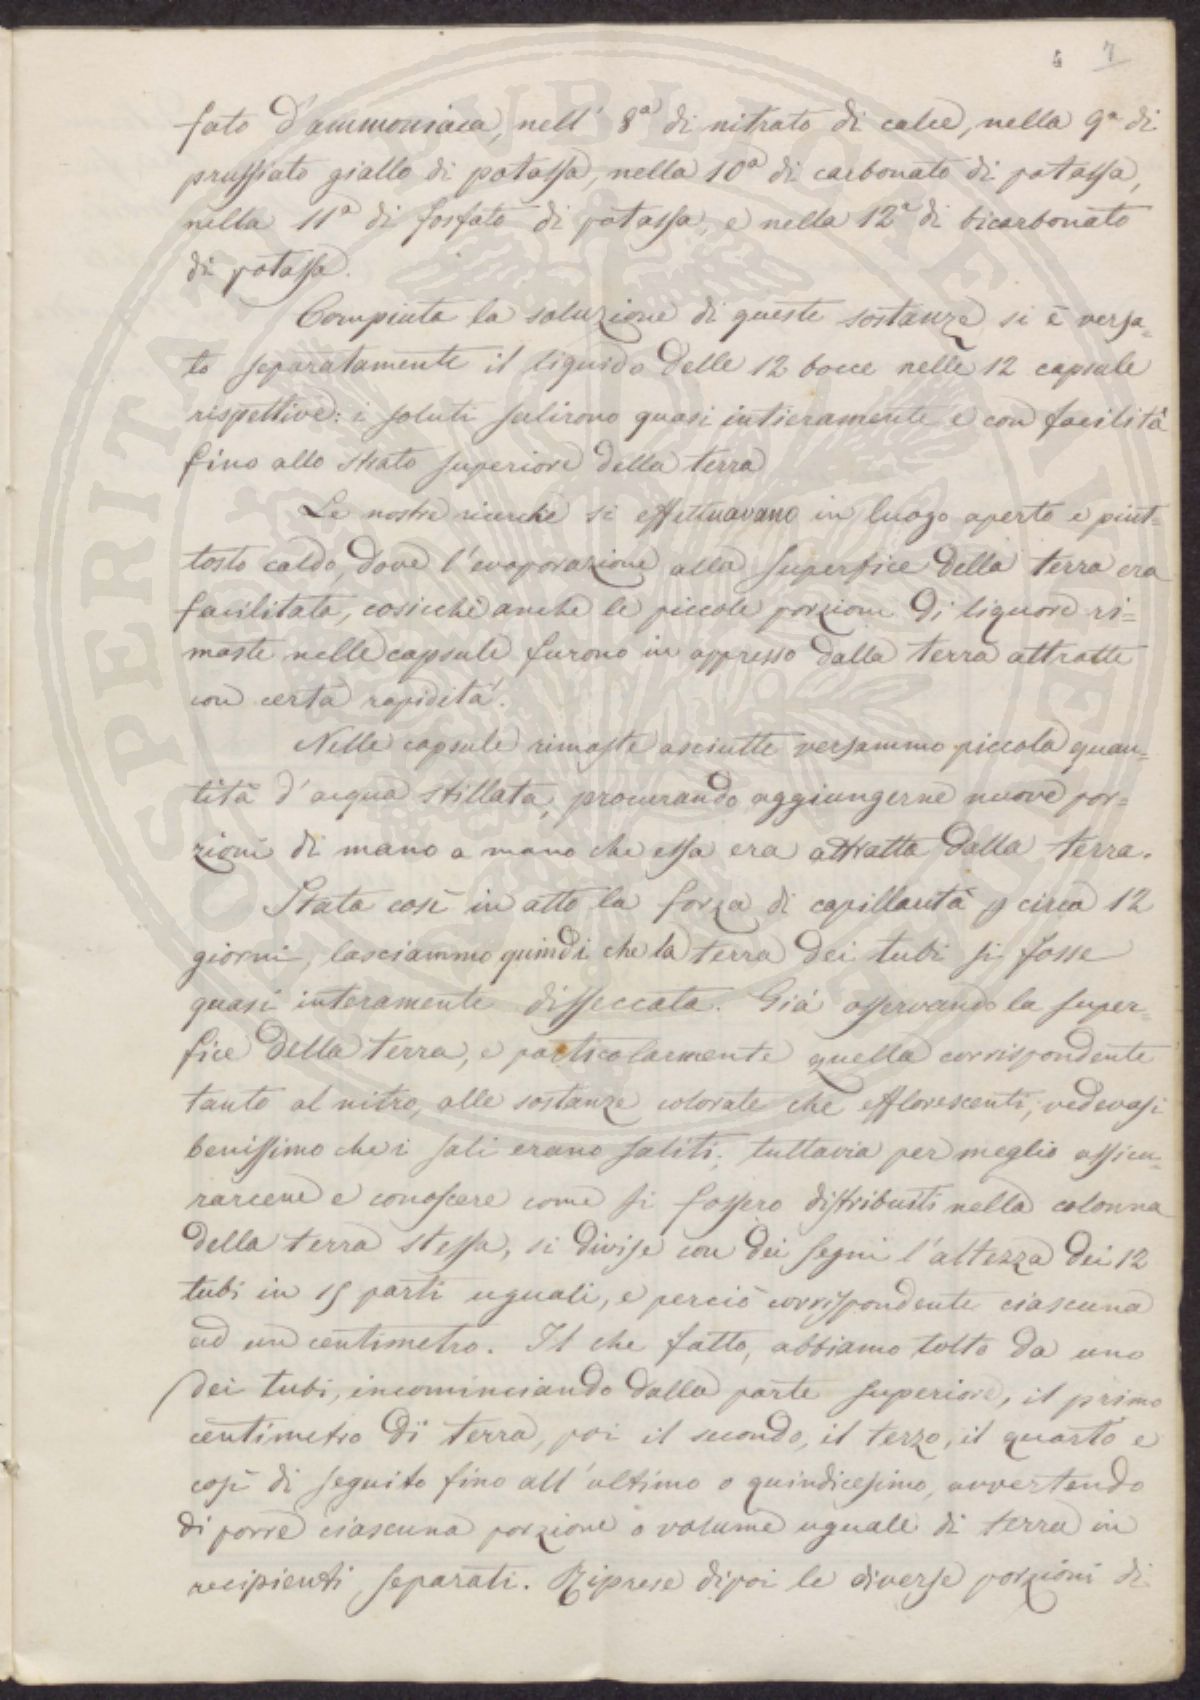 4 7
fato d'ammoniaca, nell' 8ª di nitrato di calce, nella 9ª di
prussiato giallo di potassa, nella 10ª di carbonato di potassa,
nella 11ª di fosfato di potassa, e nella 12ª di bicarbonato
di potassa.
Compiuta la soluzione di queste sostanze si è versa=
to separatamente il liquido delle 12 bocce nelle 12 capsule
rispettive: i soluti salirono quasi intieramente e con facilità
fino allo strato superiore della terra
Le nostre ricerche si effettuavano in luogo aperto e piut=
tosto caldo, dove l'evaporazione alla superfice della terra era
facilitata, cosicchè anche le piccole porzioni di liquore ri=
maste nelle capsule furono in appresso dalla terra attratte
con certa rapidità.
Nelle capsule rimaste asciutte versammo piccola quan=
tità d'acqua stillata, procurando aggiungerne nuove por=
zioni di mano a mano che essa era attratta dalla terra.
Stata così in atto la forza di capillarità p circa 12
giorni, lasciammo quindi che la terra dei tubi si fosse
quasi interamente disseccata. Già osservando la super=
fice della terra, e particolarmente quella corrispondente
tanto al nitro, alle sostanze colorate che efflorescenti, vedevasi
benissimo che i sali erano saliti; tuttavia per meglio assicu=
rarcene e conoscere come si fossero distribuiti nella colonna
della terra stessa, si divise con dei segni l'altezza dei 12
tubi in 15 parti uguali, e perciò corrispondente ciascuna
ad un centimetro. Il che fatto, abbiamo tolto da uno
dei tubi, incominciando dalla parte superiore, il primo
centimetro di terra, poi il secondo, il terzo, il quarto e
così di seguito fino all'ultimo o quindicesimo, avvertendo
di porre ciascuna porzione o volume uguale di terra in
recipienti separati. Riprese dipoi le diverse porzioni di